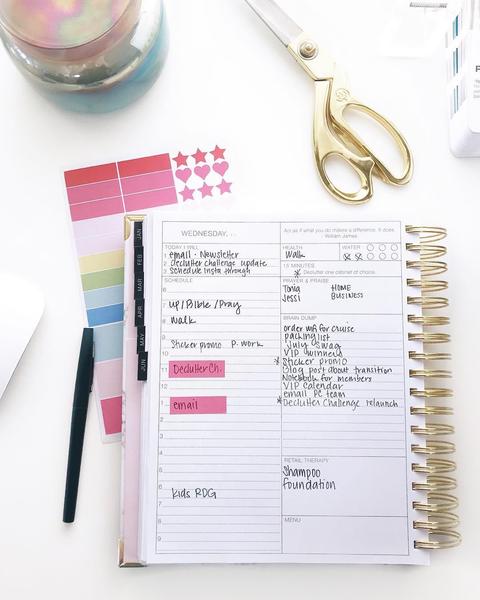 WEDNESDAY, . .
Act as if what you do makes a difference. It does.
- William James
TODAY I WILL
1 email - Newsletter
2 declutter challenge update
3 schedule Insta through
HEALTH
Walk
WATER
15 MINUTES
* Declutter one cabinet of choice.
SCHEDULE
6
7 up/Bible/Pray
8 Walk
9
Sticker promo P. work
10
11 Declutter Ch.
12
1 email
2
3
4
5
6
kids RDG
7
8
9
PRAYER & PRAISE
Tonia HOME
Jessi BUSINESS
BRAIN DUMP
order for cruise
packing list
July swag
VIP winners
* Sticker promo
Blog post about transition
Notebook for members
VIP calendar
email PE team
* Declutter challenge relaunch
RETAIL THERAPY
Shampoo
foundation
MENU
JAN
FEB
MAR
APR
MAY
JUN